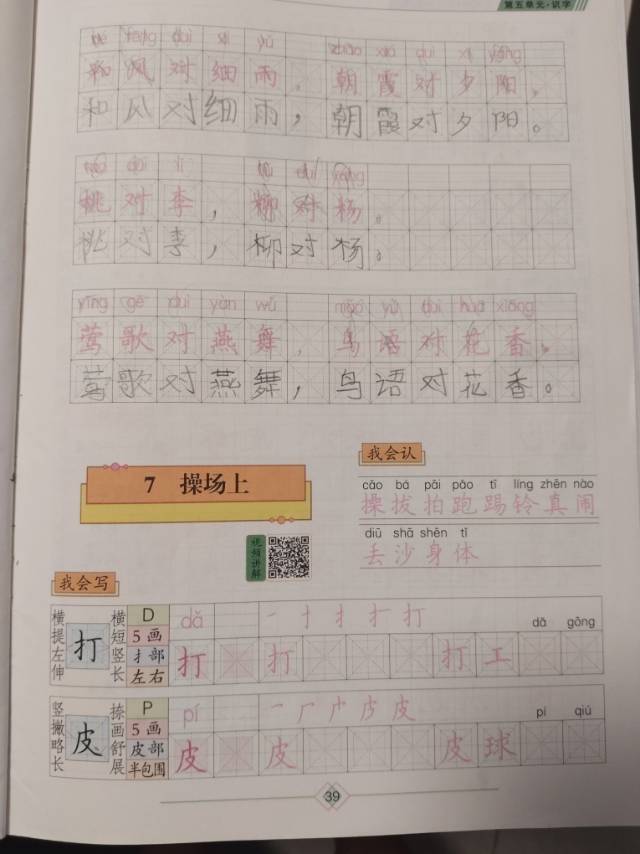 第五单元·识字
hé fēng duì xì yǔ zhāo xiá duì xī yáng
和风对细雨，朝霞对夕阳。
和风对细雨，朝霞对夕阳。
táo duì lǐ liǔ duì yáng
桃对李，柳对杨。
桃对李，柳对杨。
yīng gē duì yàn wǔ niǎo yǔ duì huā xiāng
莺歌对燕舞，鸟语对花香。
莺歌对燕舞，鸟语对花香。
7 操场上
视频讲解
我会认
cāo bá pāi pǎo tī líng zhēn nào
操拔拍跑踢铃真闹
diū shā shēn tǐ
丢沙身体
我会写
横提左伸
打
横短竖长
D
5画
扌部
左右
dǎ
一 扌 扌 打 打
dǎ gōng
打 打 打工
竖撇略长
皮
捺画舒展
P
5画
皮部
半包围
pí
皮
pí qiú
皮 皮 皮球
39